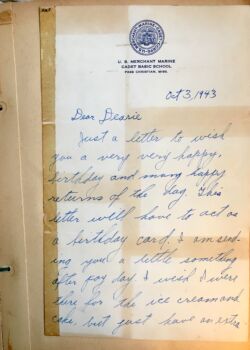 U. S. MERCHANT MARINE
CADET BASIC SCHOOL
PASS CHRISTIAN, MISS.
Oct 3, 1943
Dear Dearie
Just a letter to wish
you a very very happy,
birthday and many happy
returns of the day. This
letter will have to act as
a birthday card. I am send
ing you a little something
after pay day. I wish I were
there for the ice cream and
cake, but just have an extra